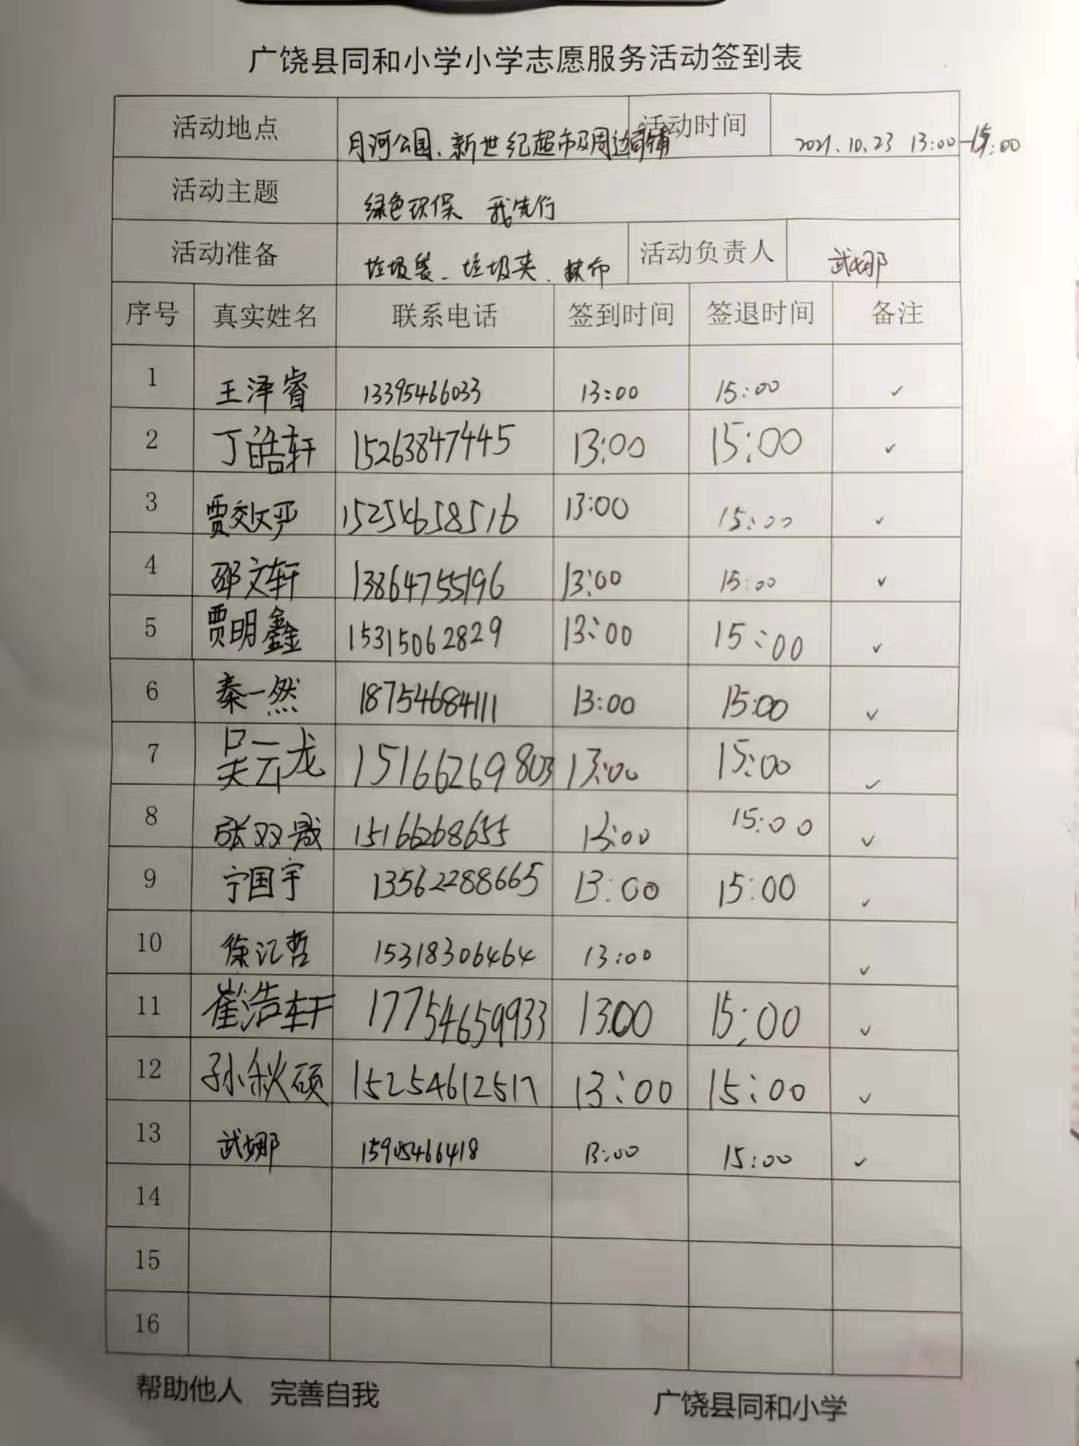 广饶县同和小学小学志愿服务活动签到表
活动地点 月河公园、新世纪超市及周边商铺 活动时间 2021.10.23 13:00-15:00
活动主题 绿色环保 我先行
活动准备 垃圾袋、垃圾夹、抹布 活动负责人 武娜
序号 真实姓名 联系电话 签到时间 签退时间 备注
1 王泽睿 13395466033 13:00 15:00 ✓
2 丁皓轩 15263847445 13:00 15:00 ✓
3 贾 15254658516 13:00 15:00 ✓
4 邵文轩 13864755196 13:00 15:00 ✓
5 贾明鑫 15315062829 13:00 15:00 ✓
6 秦一然 18754684111 13:00 15:00 ✓
7 吴云龙 15166269803 13:00 15:00 ✓
8 张双晟 15166268655 13:00 15:00 ✓
9 宁国宇 13562288665 13:00 15:00 ✓
10 徐汇哲 15318306464 13:00 ✓
11 崔浩轩 17754659933 13:00 15:00 ✓
12 孙秋硕 15254612517 13:00 15:00 ✓
13 武娜 15905466418 13:00 15:00 ✓
14
15
16
帮助他人 完善自我 广饶县同和小学